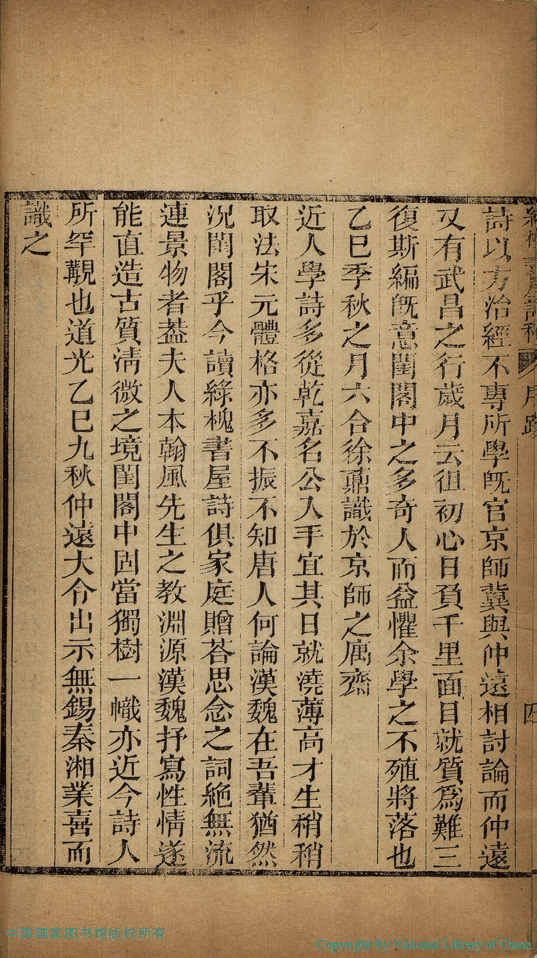 詩以方治經不專所學旣官京師冀與仲遠相討論而仲遠
又有武昌之行歲月云徂初心日負千里面目就質爲難三
復斯編旣意閨閣中之多奇人而益懼余學之不殖將落也
乙巳季秋之月六合徐鼒識於京師之寓齋
近人學詩多從乾嘉名公入手宜其日就澆薄高才生稍稍
取法宋元體格亦多不振不知唐人何論漢魏在吾輩猶然
況閨閣乎今讀綠槐書屋詩俱家庭贈荅思念之詞絶無流
連景物者葢夫人本翰風先生之教淵源漢魏抒寫性情遂
能直造古質淸微之境閨閣中固當獨樹一幟亦近今詩人
所罕覯也道光乙巳九秋仲遠大令出示無錫秦湘業喜而
識之
中国国家图书馆版权所有
Copyright By National Library of China